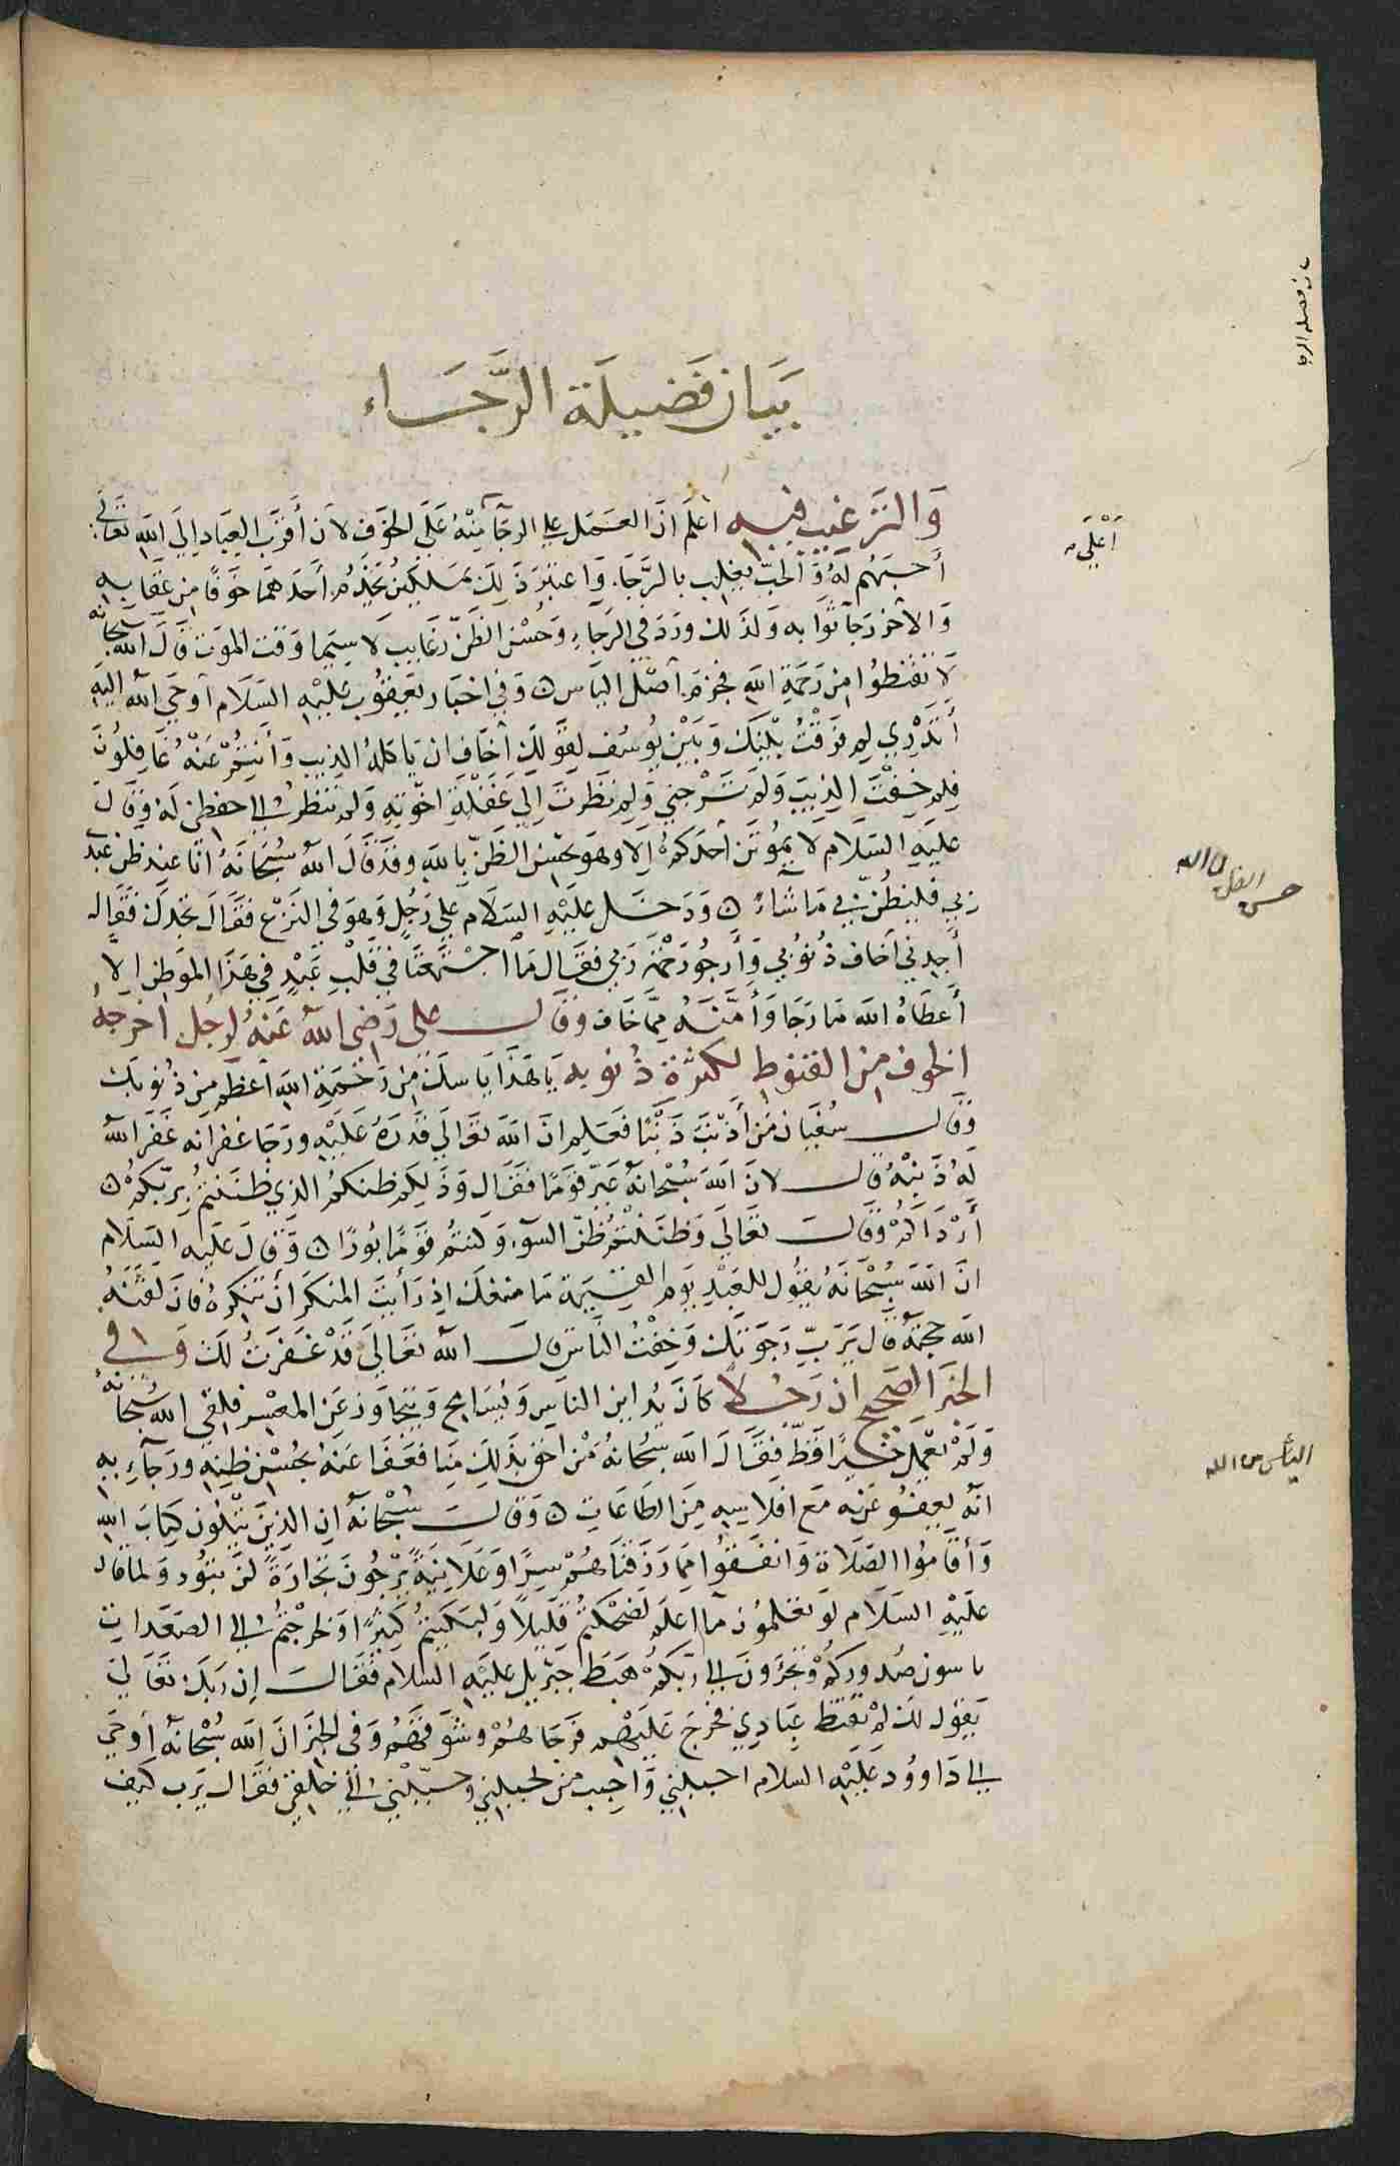 بيان فضيلة الرجاء
والترغيب فيه اعلم ان العمل على الرجآ منه على الخوف لان أقرب العباد إلى الله تعالى
أحبهم له والحب يغلب بالرجآء واعتبر ذلك بملكين يخدم أحدهما خوفًا من عقابه
والآخر رجآ ثوابه ولذلك ورد في الرجاء وحسن الظن رغايب لا سيما وقت الموت قال الله سبحانه
لا تقنطوا من رحمة الله فحرم أصل الياس وفي اخبار يعقوب عليه السلام أوحى الله اليه
أتدري لم فرقت بينك وبين يوسف لقولك أخاف ان ياكله الذيب وأنتم عنه غافلون
فلم خفت الذيب ولم ترجني ولم نظرت إلى غفلة اخوته ولم تنظر إلى حفظي له وقال
عليه السلام لا يموتن أحدكم إلا وهو يحسن الظن بالله وقد قال الله سبحانه انا عند ظن عبدي
بي فليظن بي ما شاء ودخل عليه السلام على رجل وهو في النزع فقال تجدك فقال
أجدني أخاف ذنوبي وأرجو رحمة ربي فقال ما اجتمعتا في قلب عبد في هذا الموطن الا
أعطاه الله ما رجا وأمنه مما خاف وقال علي رضي الله عنه لرجل اخرجه
الخوف من القنوط لكثرة ذنوبه يا هذا ياسك من رحمة الله أعظم من ذنوبك
وقال سفيان من أذنب ذنبًا فعلم ان الله تعالى قدره عليه ورجا غفرانه غفر الله
له ذنبه قال لان الله سبحانه عير قومًا فقال وذلكم ظنكم الذي ظننتم بربكم
أرداكم وقال تعالى وظننتم ظن السوء وكنتم قومًا بورًا وقال عليه السلام
ان الله سبحانه يقول للعبد يوم القيمة ما منعك اذ رأيت المنكر أن تنكره فان لقنه
الله حجته قال يرب رجوتك وخفت الناس قال الله تعالى قد غفرت لك وفي
الخبر الصحيح ان رجلا كان يداين الناس ويسامح ويتجاوز عن المعسر فلقي الله سبحانه
ولم يعمل خيرًا قط فقال الله سبحانه من احق بذلك منا فعفا عنه بحسن ظنه ورجآءه
انه يعفو عنه مع افلاسه من الطاعات وقال سبحانه ان الذين يتلون كتاب الله
وأقاموا الصلاة وانفقوا مما رزقناهم سرًا وعلانيةً يرجون تجارةً لن تبور ولما قال
عليه السلام لو تعلمون مآ اعلم لضحكتم قليلاً ولبكيتم كثيرًا ولخرجتم إلى الصعدات
صدوركم وتجرون إلى ربكم هبط جبريل عليه السلام فقال ان ربك تعالى
يقول لك لم تقنط عبادي فخرج عليهم فرجاهم وشوقهم وفي الخبر ان الله سبحانه أوحى
إلى داوود عليه السلام احببني واحبب من يحببني وحببني إلى خلقي فقال يرب كيف
بيان فضيلة الرجا
أعلى
حسن الظن بالله
اليأس من الله